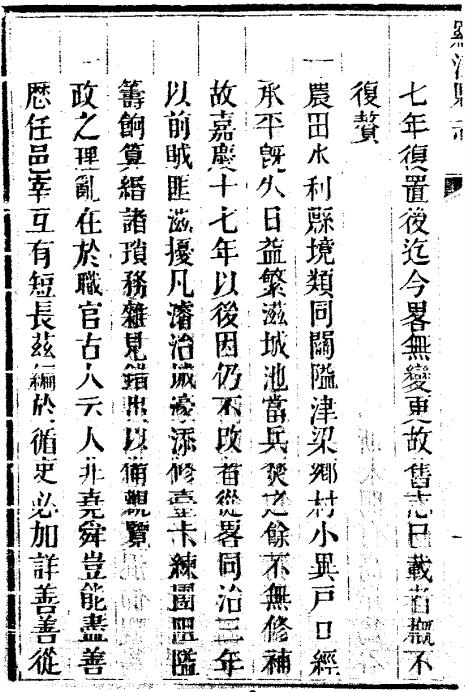 羅江縣志
七年復置後迄今畧無變更故舊志已載者概不
復贅
一農田水利縣境類同關隘津梁鄉村小異戶口經
承平旣久日益繁滋城池當兵燹之餘不無修補
故嘉慶十七年以後因仍不改者從畧同治三年
以前賊匪滋擾凡濬治城壕添修臺卡練團堅隘
籌餉算緡諸瑣務雜見錯出以備觀覽
一政之理亂在於職官古人云人非堯舜豈能盡善
歷任邑宰互有短長茲編於循吏必加詳善善從